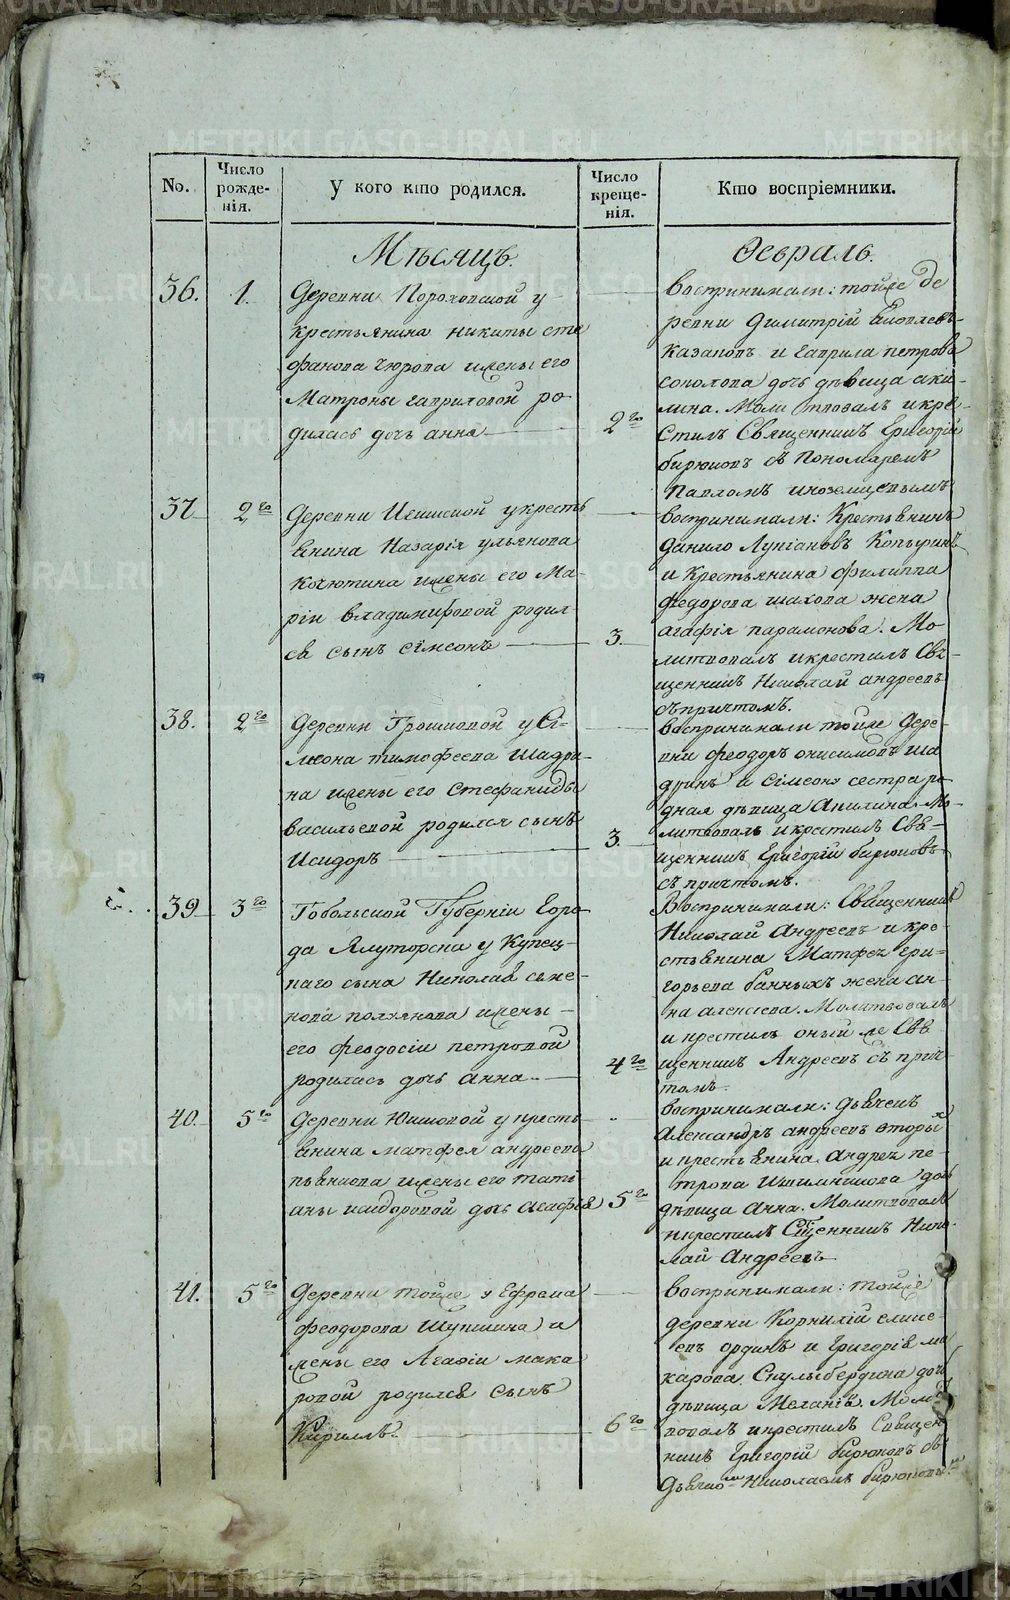 No.
Число рожде-нія.
У кого кто родился.
Число креще-нія.
Кто воспріемники.
Мѣсяцъ.
Февраль.
36.
1.
Деревни Пороховской у
крестьянина никиты сте
фанова Чюрова и жены его
Матроны гавриловой ро
дилась дочь анна
2го
воспринимали: тойже де
ревни Димитрій
Казаковъ и гаврила петрова
соколова дочь дѣвица аки-
лина. Моли твовалъ икре-
стилъ Священникъ Григорій
бирюковъ съ Пономаремъ
Павломъ иноземцевымъ
37
2го
Деревни у кресть
янина Назарія ульянова
Кокютина и жены его Ма-
ріи владимировой родил-
ся сынъ сімеонъ
3.
воспринимали: Крестьянинъ
Данило Лукіановъ Копыринъ
и Крестьянина филиппа
федорова шахова жена
агафія парамонова. Мо
литвовалъ икрестилъ Свя-
щенникъ Николай андреевъ
съпричтомъ.
38.
2го
Деревни Грошковой у Сі-
меона тимофеева Шадри-
на и жены его Стефаниды
васильевой родился сынъ
Исидоръ
3.
воспринимали тойже Дере-
вни феодоръ онисимовъ ша
дринъ и сімеона сестра ро
дная дѣвица Акилина. Мо-
литвовалъ икрестилъ Свя-
щенникъ Григорій бирюковъ
съ причтомъ.
39
3го
Тобольской Губерніи Горо-
да Ялуторска у Купец-
каго сына Николая семе-
нова полянова и жены
его феодосіи петровой
родилась дочь анна.
4го
Воспринимали: Священникъ
Николай Андреевъ и кре-
стьянина Матфея Гри-
горьева банныхъ жена ан-
на алексіева. Молитвовалъ
и крестилъ оный же Свя-
щенникъ Андреевъ съ прич-
томъ.
40.
5го
Деревни Юшковой у кресть-
янина матфея андреева
пьянкова и жены его тати
аны исидоровой дочь агафія
5го
воспринимали: дьячекъ
Александръ андреевъ вторый
и крестьянина Андрея пе-
трова дочь
дѣвица Анна. Молитвовалъ
икрестилъ Сщенникъ Нико-
лай Андреевъ
41.
5го
Деревни тойже у Ефрема
феодорова Шукшина и
жены его Агафіи мака
ровой родился сынъ
Кириллъ.
6го
воспринимали: тойже
деревни Корнилій елисе-
евъ ординъ и Григорія ма
карова Скулыбердина дочь
дѣвица Меланія. Молит
вовалъ икрестилъ Священ
никъ Григорій бирюковъ съ
дьячкомъ Николаемъ бирюковымъ
METRIKI.GASO-URAL.RU